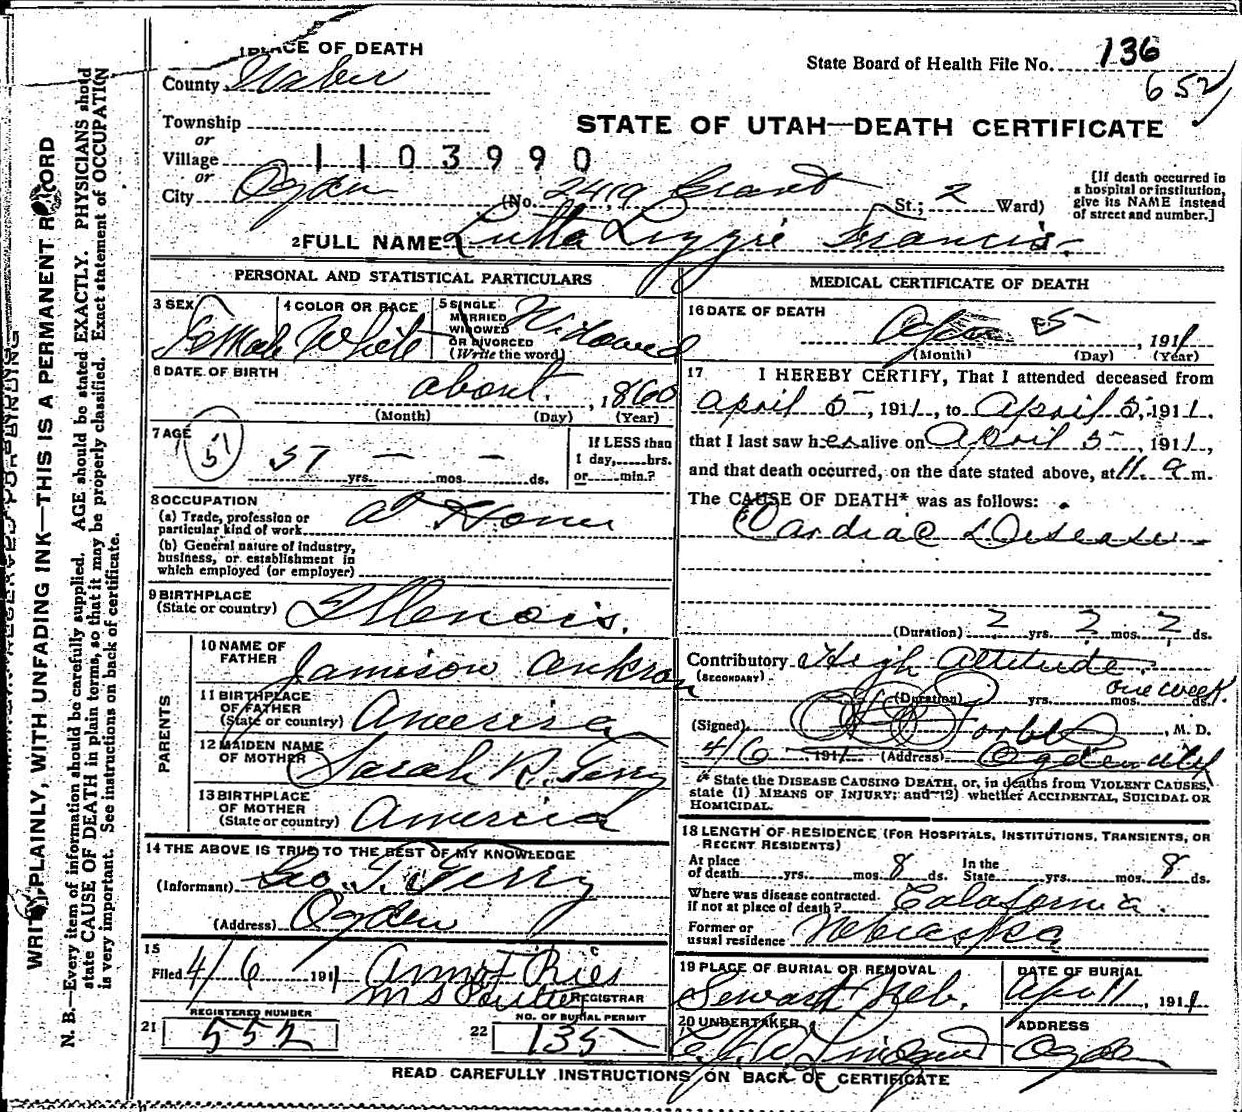 1 PLACE OF DEATH
County Weber
State Board of Health File No. 136
652
Township
or
Village
1103990
or
City Ogden (No. 2419 Grant St.; 2 Ward)
STATE OF UTAH—DEATH CERTIFICATE
[If death occurred in a hospital or institution, give its NAME instead of street and number.]
2 FULL NAME Lutta Lizzie Francis.
PERSONAL AND STATISTICAL PARTICULARS
3 SEX Female
4 COLOR OR RACE White
5 SINGLE MARRIED WIDOWED OR DIVORCED (Write the word) Widowed
6 DATE OF BIRTH about, 1860
(Month) (Day) (Year)
7 AGE 51
51 yrs. — mos. — ds.
If LESS than 1 day, hrs. or min.?
8 OCCUPATION
(a) Trade, profession or particular kind of work at Home
(b) General nature of industry, business, or establishment in which employed (or employer)
9 BIRTHPLACE
(State or country) Illenois.
PARENTS
10 NAME OF FATHER Jamison Ankrom
11 BIRTHPLACE OF FATHER (State or country) America
12 MAIDEN NAME OF MOTHER Sarah R. Terry
13 BIRTHPLACE OF MOTHER (State or country) America
14 THE ABOVE IS TRUE TO THE BEST OF MY KNOWLEDGE
(Informant) Geo. T. Terry
(Address) Ogden
15
Filed 4/6 1911
REGISTRAR
REGISTERED NUMBER
21 552
NO. OF BURIAL PERMIT
22 135
MEDICAL CERTIFICATE OF DEATH
16 DATE OF DEATH
Apr 5, 1911
(Month) (Day) (Year)
17 I HEREBY CERTIFY, That I attended deceased from
april 5, 1911, to April 5, 1911.
that I last saw her alive on April 5, 1911,
and that death occurred, on the date stated above, at 11. a m.
The CAUSE OF DEATH* was as follows:
Cardiac Disease
(Duration) ? yrs. ? mos. ? ds.
Contributory High Altitude.
(SECONDARY)
(Duration) yrs. mos. ds. one week.
(Signed) Forbes, M. D.
4/6, 1911 (Address) Ogden Utah
* State the DISEASE CAUSING DEATH, or, in deaths from VIOLENT CAUSES, state (1) MEANS OF INJURY; and (2) whether ACCIDENTAL, SUICIDAL OR HOMICIDAL.
18 LENGTH OF RESIDENCE (FOR HOSPITALS, INSTITUTIONS, TRANSIENTS, OR RECENT RESIDENTS)
At place of death yrs. mos. 8 ds. In the State yrs. mos. 8 ds.
Where was disease contracted if not at place of death? Calafornia.
Former or usual residence Nebraska
19 PLACE OF BURIAL OR REMOVAL Seward Neb.
DATE OF BURIAL Apr 11, 1911
20 UNDERTAKER
ADDRESS Ogden
READ CAREFULLY INSTRUCTIONS ON BACK OF CERTIFICATE
WRITE PLAINLY, WITH UNFADING INK—THIS IS A PERMANENT RECORD
N. B.—Every item of information should be carefully supplied. AGE should be stated EXACTLY. PHYSICIANS should
state CAUSE OF DEATH in plain terms, so that it may be properly classified. Exact statement of OCCUPATION
is very important. See instructions on back of certificate.